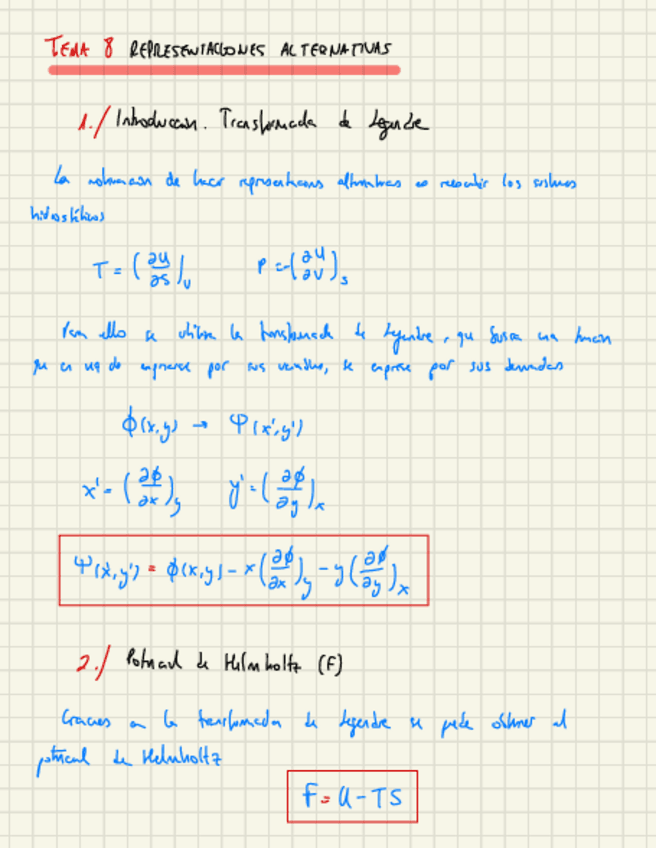 TEMA 8 REPRESENTACIONES ALTERNATIVAS
1./ Introducción. Transformada de Legendre
La de hacer representaciones alternativas es los sistemas
hidrostáticos
T = (∂U/∂S)_V P = -(∂U/∂V)_S
Para ello se utiliza la transformada de Legendre, que busca una función
que en vez de expresarse por sus variables, se exprese por sus derivadas
ϕ(x,y) → Ψ(x',y')
x' = (∂ϕ/∂x)_y y' = (∂ϕ/∂y)_x
Ψ(x',y') = ϕ(x,y) - x(∂ϕ/∂x)_y - y(∂ϕ/∂y)_x
2./ Potencial de Helmholtz (F)
Gracias a la transformada de Legendre se puede obtener el
potencial de Helmholtz
F = U - TS